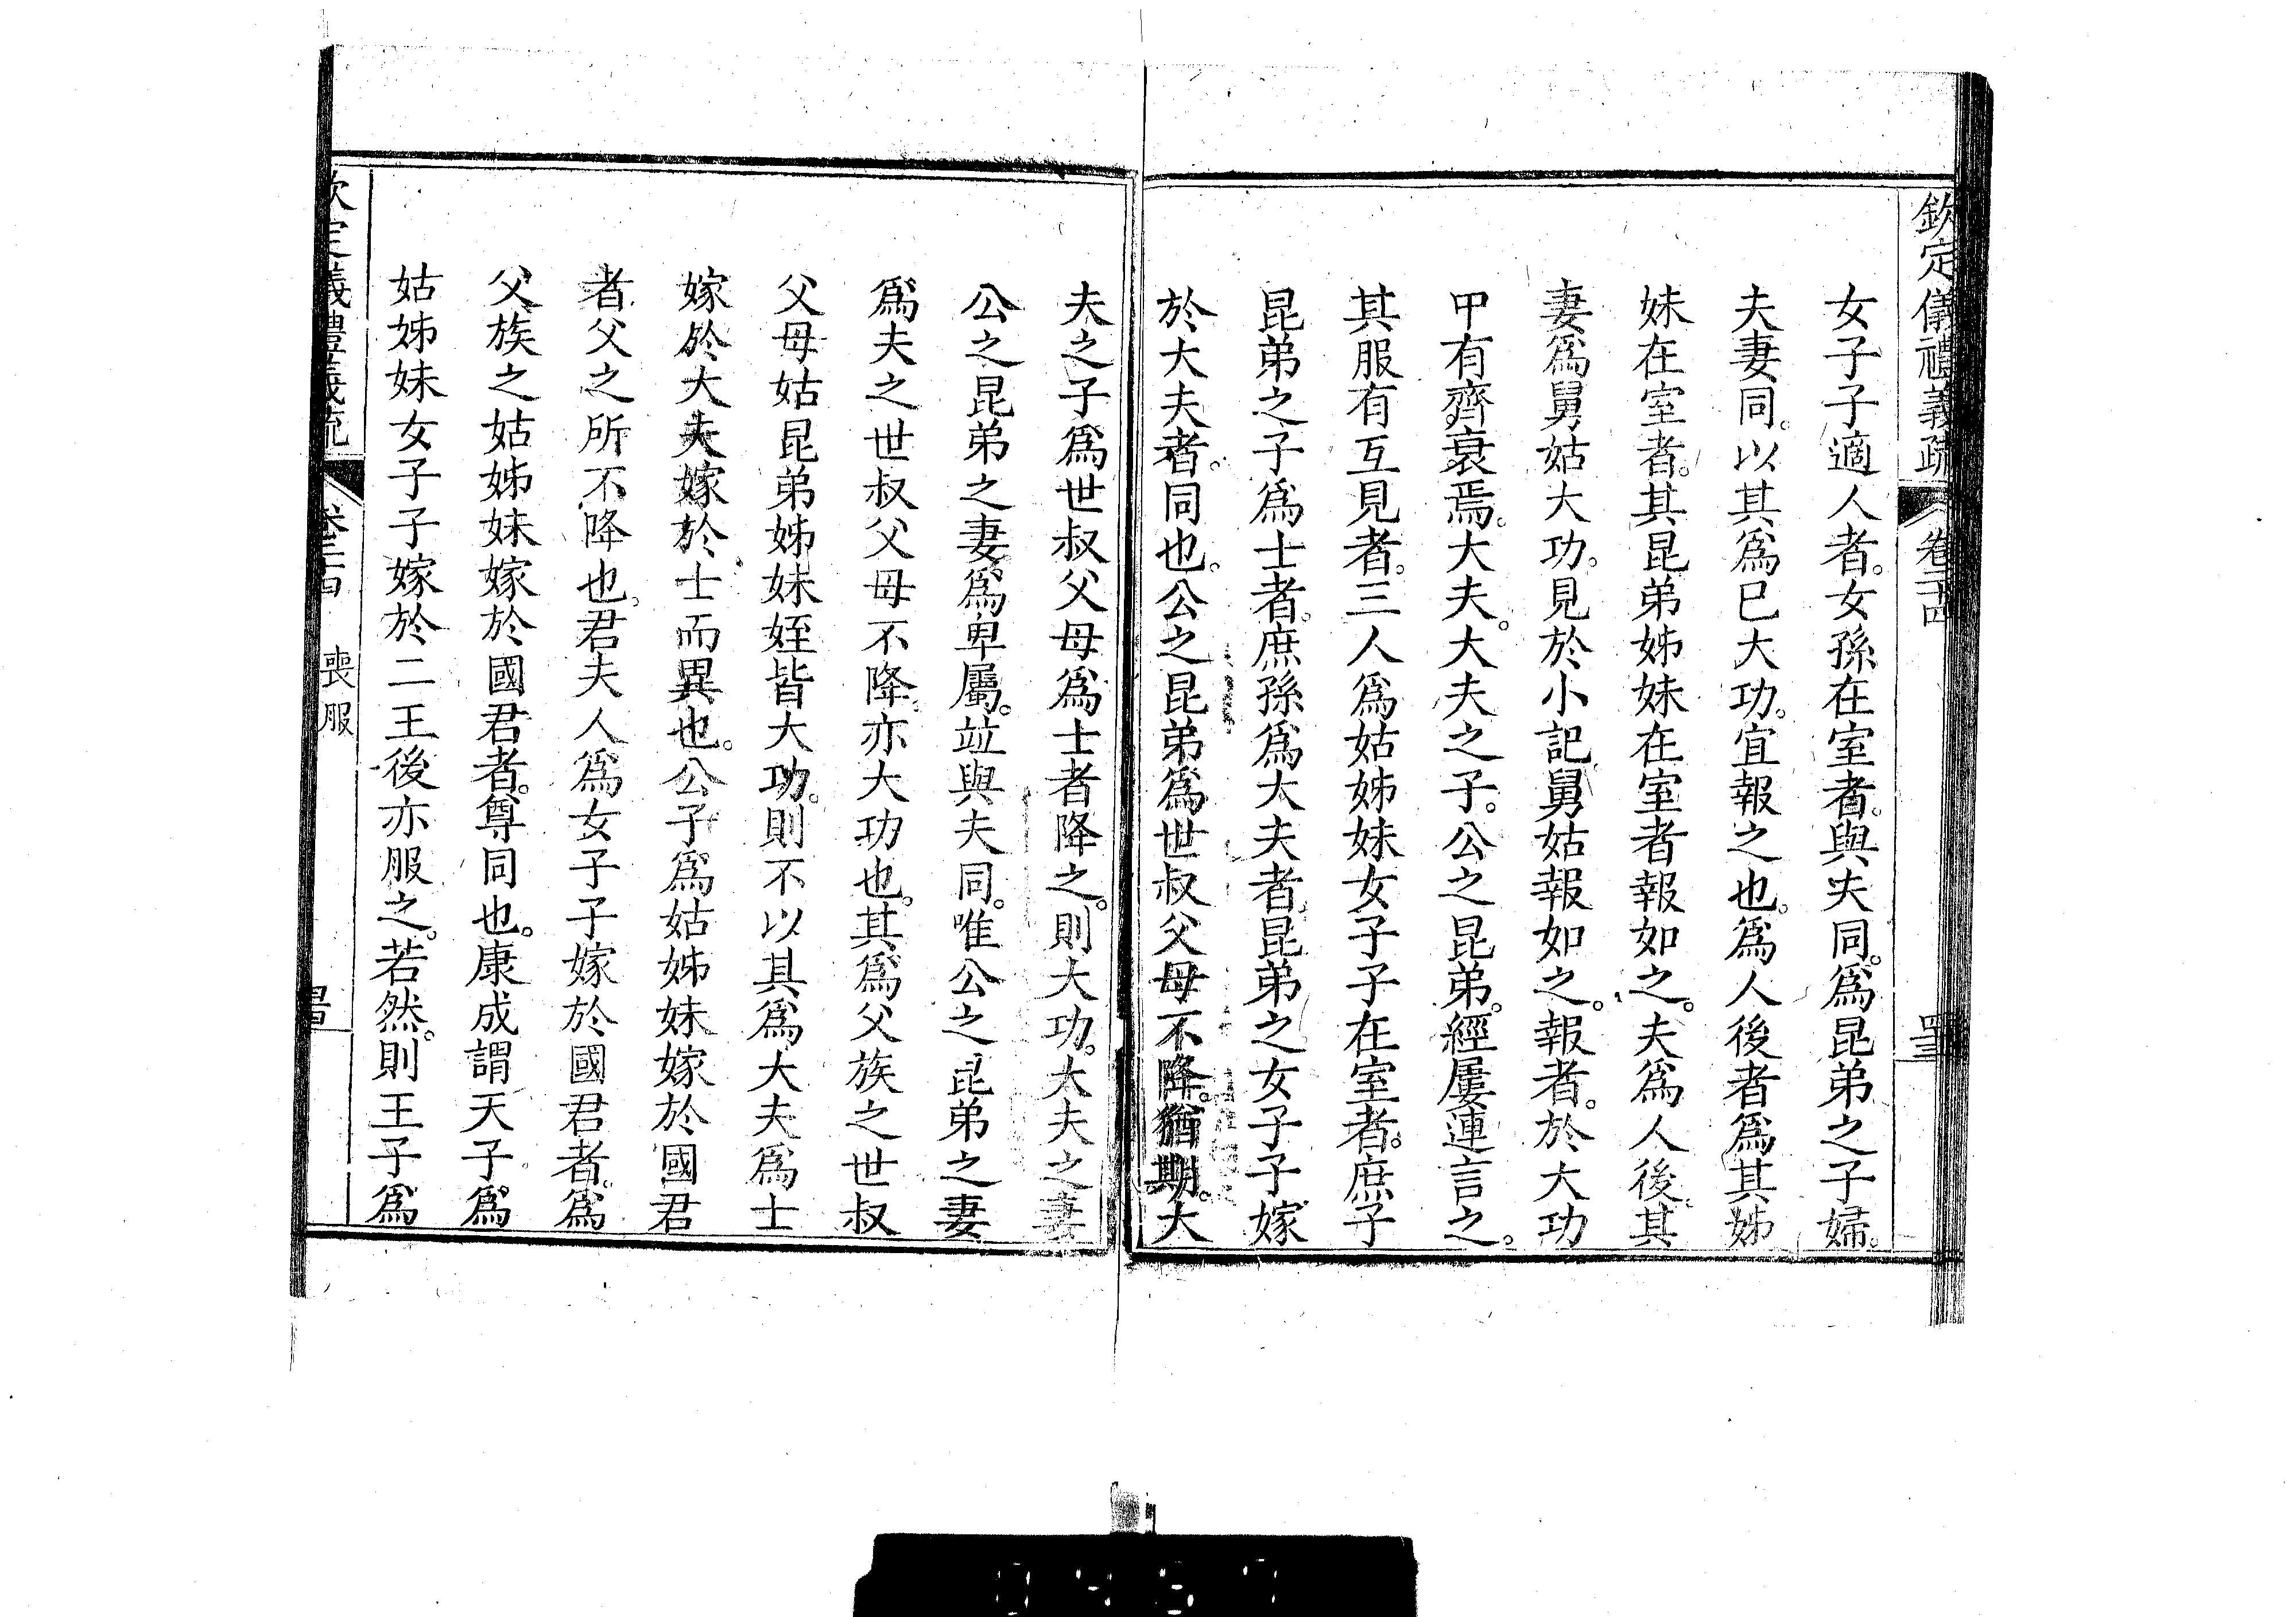 欽定儀禮義疏 卷二十四
女子子適人者。女孫在室者。與夫同。爲昆弟之子婦。
夫妻同。以其爲已大功。宜報之也。爲人後者爲其姊
妹在室者。其昆弟姊妹在室者報如之。夫爲人後。其
妻爲舅姑大功。見於小記。舅姑報如之。報者。於大功
甲有齊衰焉。大夫。大夫之子。公之昆弟。經屢連言之。
其服有互見者。三人爲姑姊妹女子子在室者。庶子
昆弟之子爲士者。庶孫爲大夫者。昆弟之女子子嫁
於大夫者。同也。公之昆弟爲世叔父母不降。猶期。大
夫之子爲世叔父母爲士者降之。則大功。大夫之妻
公之昆弟之妻。爲卑屬。竝與夫同。唯公之昆弟之妻
爲夫之世叔父母不降。亦大功也。其爲父族之世叔
父母姑昆弟姊妹姪皆大功。則不以其爲大夫爲士
嫁於大夫嫁於士而異也。公子爲姑姊妹嫁於國君
者。父之所不降也。君夫人爲女子子嫁於國君者。爲
父族之姑姊妹嫁於國君者。尊同也。康成謂天子。爲
姑姊妹女子子嫁於二王後亦服之。若然。則王子爲
欽定儀禮義疏 卷二十四 喪服